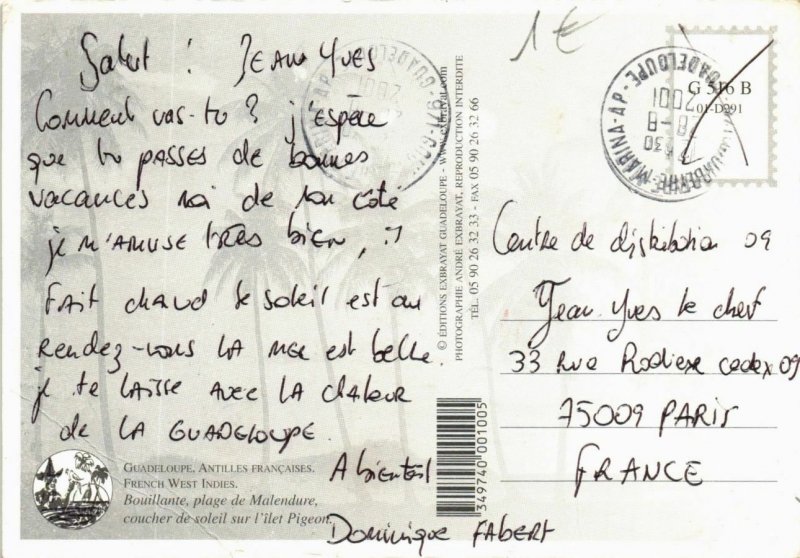 Salut ! JEAN YVES
Comment vas-tu ? j'espère
que tu passes de bonnes
vacances moi de mon côté
je m'amuse très bien, il
Fait chaud le soleil est au
Rendez-vous la mer est belle.
je te laisse avec la chaleur
de la GUADELOUPE.
A bientôt
Dominique FABERT
GUADELOUPE, ANTILLES FRANÇAISES.
FRENCH WEST INDIES.
Bouillante, plage de Malendure,
coucher de soleil sur l'îlet Pigeon.
© ÉDITIONS EXBRAYAT GUADELOUPE - www.exbrayat.com
PHOTOGRAPHIE ANDRÉ EXBRAYAT, REPRODUCTION INTERDITE
TÉL. 05 90 26 32 33 - FAX 05 90 26 32 66
3249740 001005
1€
G 516 B
01-D991
2001
MARINA-AP-
GUADELOUPE
Centre de distribution 09
Jean Yves le chef
33 Rue cedex 09
75009 PARIS
FRANCE